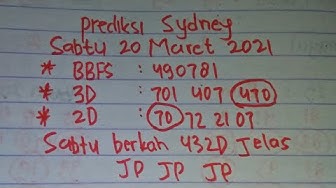 prediksi Sydney
Sabtu 20 Maret 2021
* BBFS : 490781
* 3D : 701 407 470
* 2D : 70 72 21 07
Sabtu berkah 432D Jelas
JP JP JP